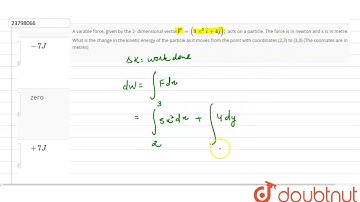 23798066
A variable force, given by the 2- dimensional vector F = (3x² i + 4j), acts on a particle. The force is in newton and x is in metre.
What is the change in the kinetic energy of the particle as it moves from the point with coordinates (2,3) to (3,0).(The coornates are in
metres)
-7J
zero
+7J
ΔK = work done
dW = ∫ F dx
3
= ∫ 3x² dx + ∫ 4 dy
2
doubtnut